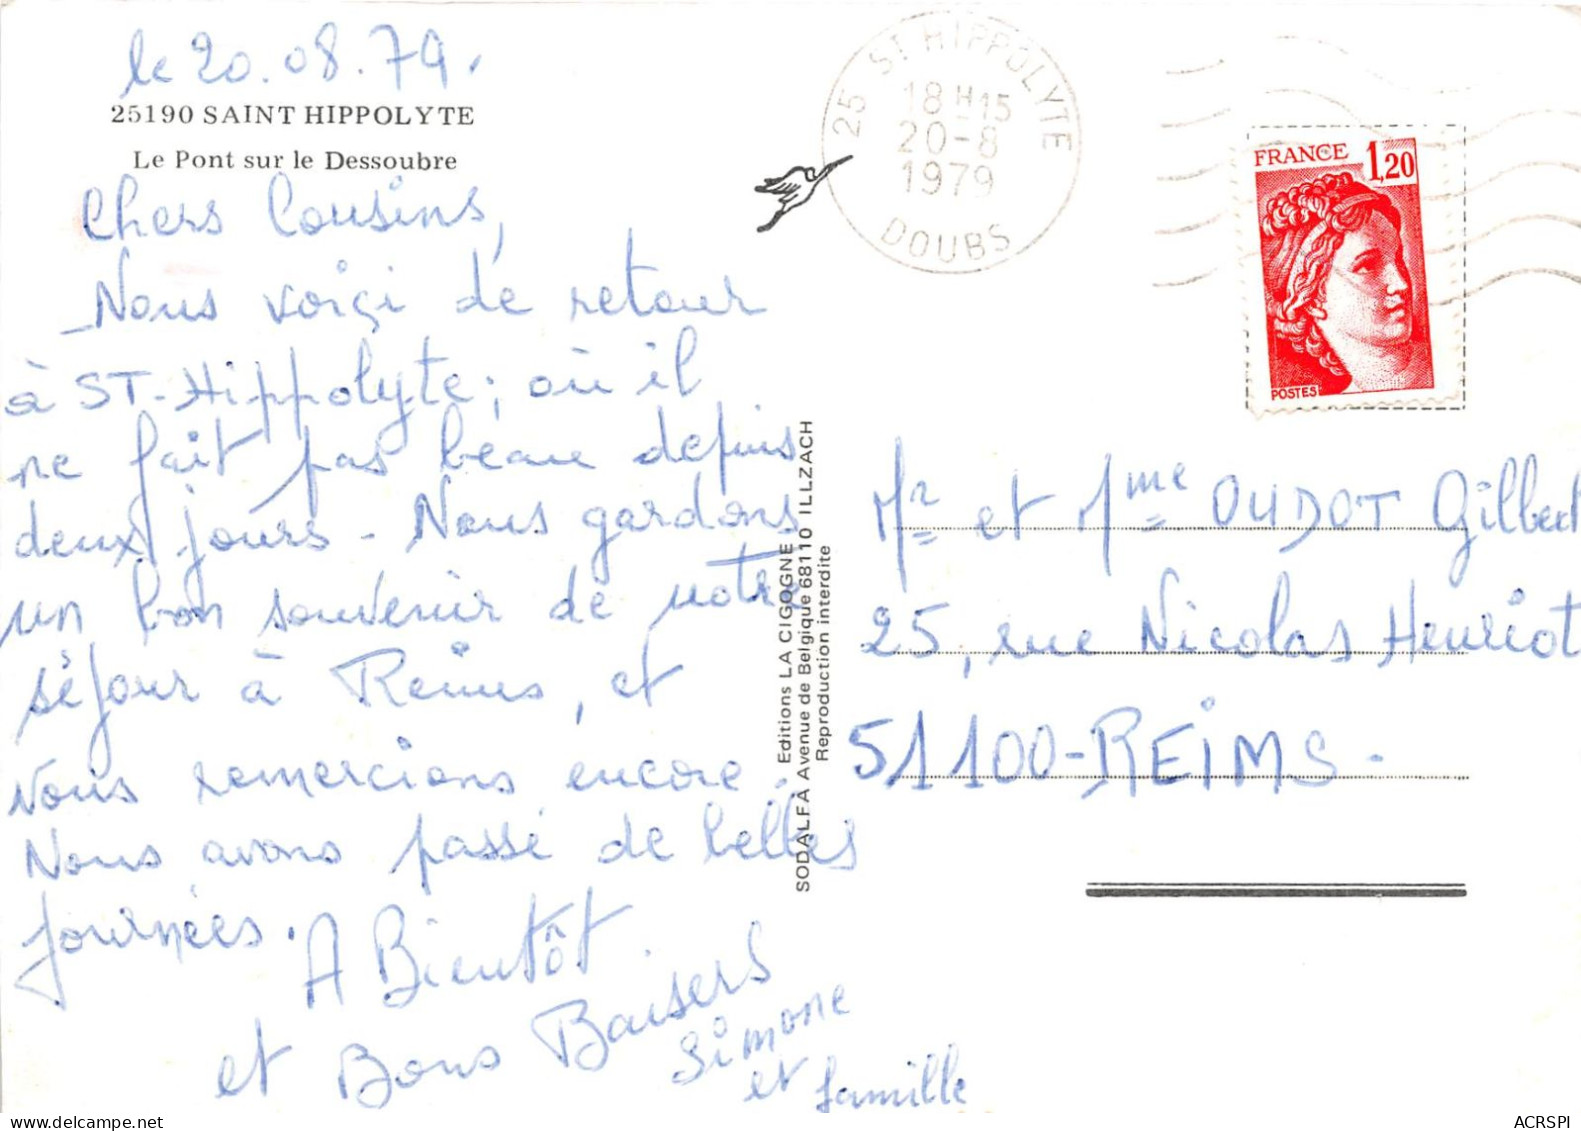 le 20.08.79.
25190 SAINT HIPPOLYTE
Le Pont sur le Dessoubre
Chers Cousins,
Nous voiçi de retour
à ST-Hippolyte; où il
ne fait pas beau depuis
deux jours - Nous gardons
un bon souvenir de notre
séjour à Reims, et
vous remercions encore.
Nous avons passé de belles
journées.
A Bientôt
et Bons Baisers
Simone
et famille
Editions LA CIGOGNE
SODALFA Avenue de Belgique 68110 ILLZACH
Reproduction interdite
25 ST HIPPOLYTE
18 H 15
20-8
1979
DOUBS
FRANCE 1,20
POSTES
Mr et Mme OUDOT Gilbert
25, rue Nicolas Henriot
51100-REIMS-
ACRSPI